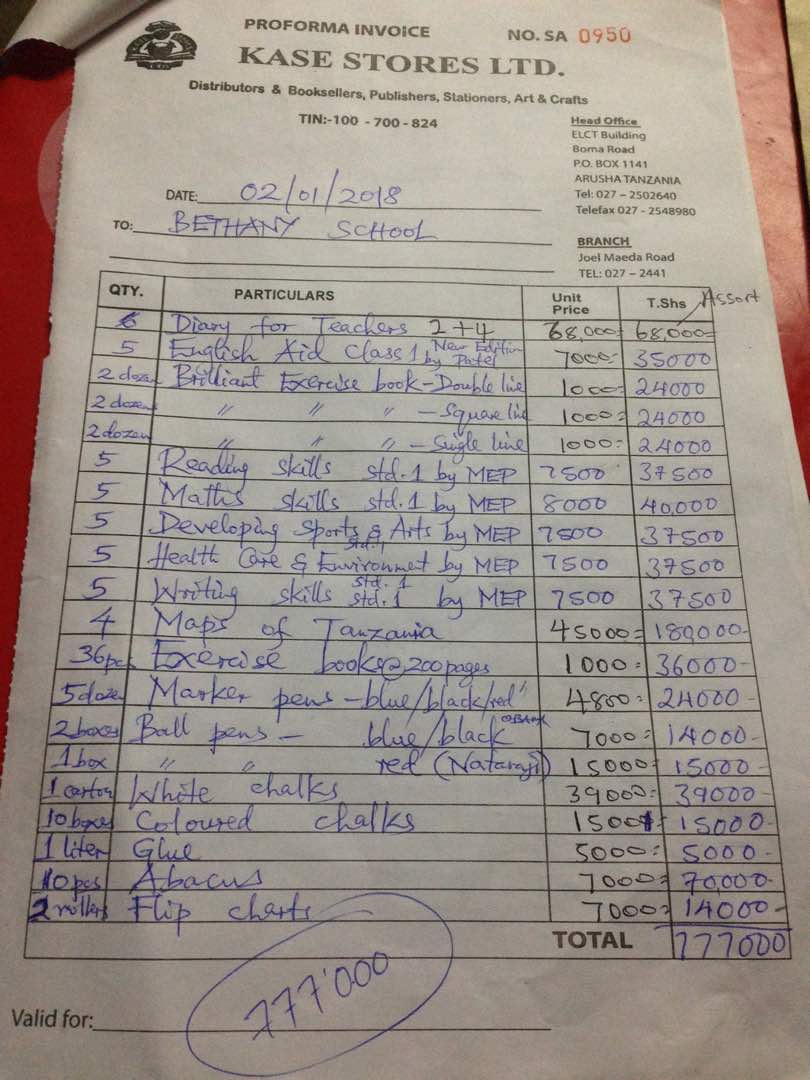 PROFORMA INVOICE
NO. SA 0950
KASE STORES LTD.
Distributors & Booksellers, Publishers, Stationers, Art & Crafts
TIN:-100 - 700 - 824
Head Office
ELCT Building
Boma Road
P.O. BOX 1141
ARUSHA TANZANIA
Tel: 027 – 2502640
Telefax 027 - 2548980
DATE: 02/01/2018
TO: BETHANY SCHOOL
BRANCH
Joel Maeda Road
TEL: 027 – 2441
QTY. PARTICULARS Unit Price T.Shs Assort
6 Diary for Teachers 2+4 68,000= 68,000=
5 English Aid Class 1 New Edition by Patel 7000= 35000
2 dozen Brilliant Exercise book - Double line 1000= 24000
2 dozen " " " - Square line 1000= 24000
2 dozen " " " - Single line 1000= 24000
5 Reading skills std.1 by MEP 7500 37500
5 Maths skills std.1 by MEP 8000 40,000
5 Developing Sports & Arts by MEP 7500 37500
5 Health Care & Environment std.1 by MEP 7500 37500
5 Writing skills std.1 std.1 by MEP 7500 37500
4 Maps of Tanzania 45000= 180000-
36pcs Exercise books@200pages 1000= 36000-
5 dozen Marker pens - blue/black/red 4800= 24000-
2 boxes Ball pens - blue/black 7000= 14000-
1 box " " red (Nataraji) 15000= 15000-
1 carton White chalks 39000= 39000-
10 boxes Coloured chalks 1500 15000-
1 liter Glue 5000= 5000-
10 pcs Abacus 7000= 70,000-
2 rollers Flip charts 7000= 14000-
TOTAL 777000
777'000
Valid for: